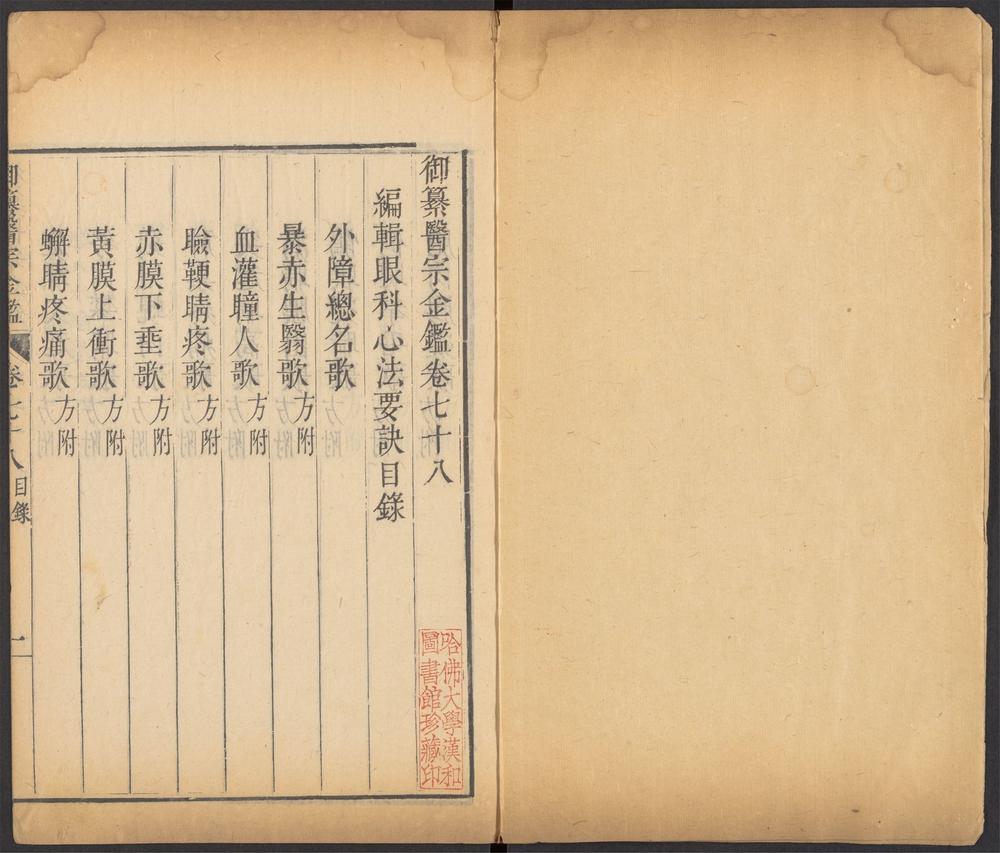 御纂醫宗金鑑卷七十八
編輯眼科心法要訣目錄
外障總名歌
暴赤生翳歌方附
血灌瞳人歌方附
瞼鞕睛疼歌方附
赤膜下垂歌方附
黃膜上衝歌方附
蠏睛疼痛歌方附
御纂醫宗金鑑 卷七十八目錄 一
哈佛大學漢和
圖書館珍藏印